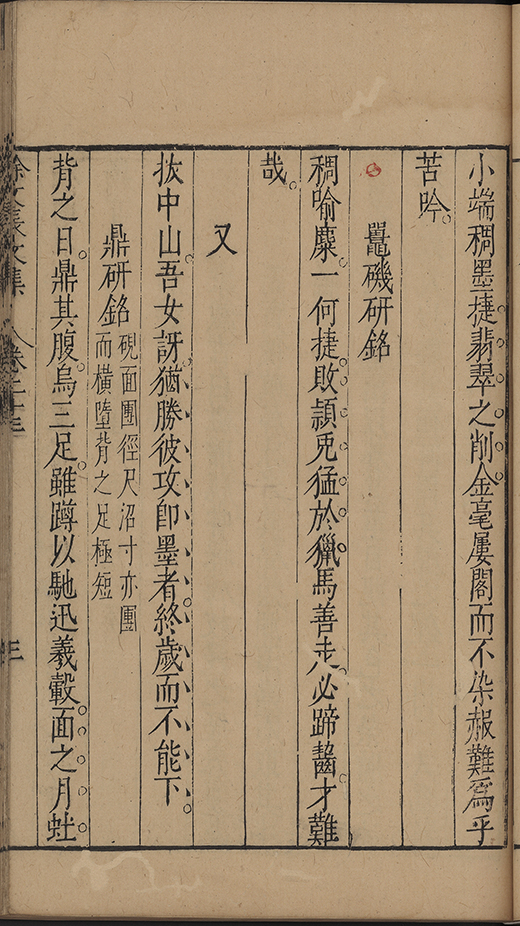 小端稠墨捷翡翠之削金毫屢閣而不染赧難爲乎
苦吟
鼉磯研銘
稠喻麋一何捷敗頴兎猛於獵馬善走必蹄齧才難
哉
又
拔中山吾女訝猶勝彼攻卽墨者終歲而不能下
鼎研銘
硯面團徑尺沼寸亦團
而橫墮背之足極短
背之日鼎其腹烏三足雖蹲以馳迅羲轂面之月蚟
徐文長文集
卷二十三
三